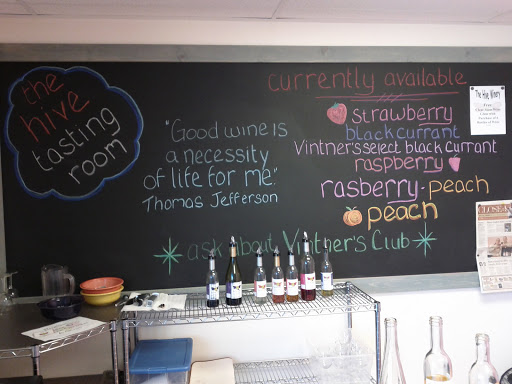 the
hive
tasting
room
"Good wine is
a necessity
of life for me."
Thomas Jefferson
currently available
strawberry
black currant
Vintner's select black currant
raspberry
rasberry - peach
peach
ask about Vintner's Club
The Hive Winery